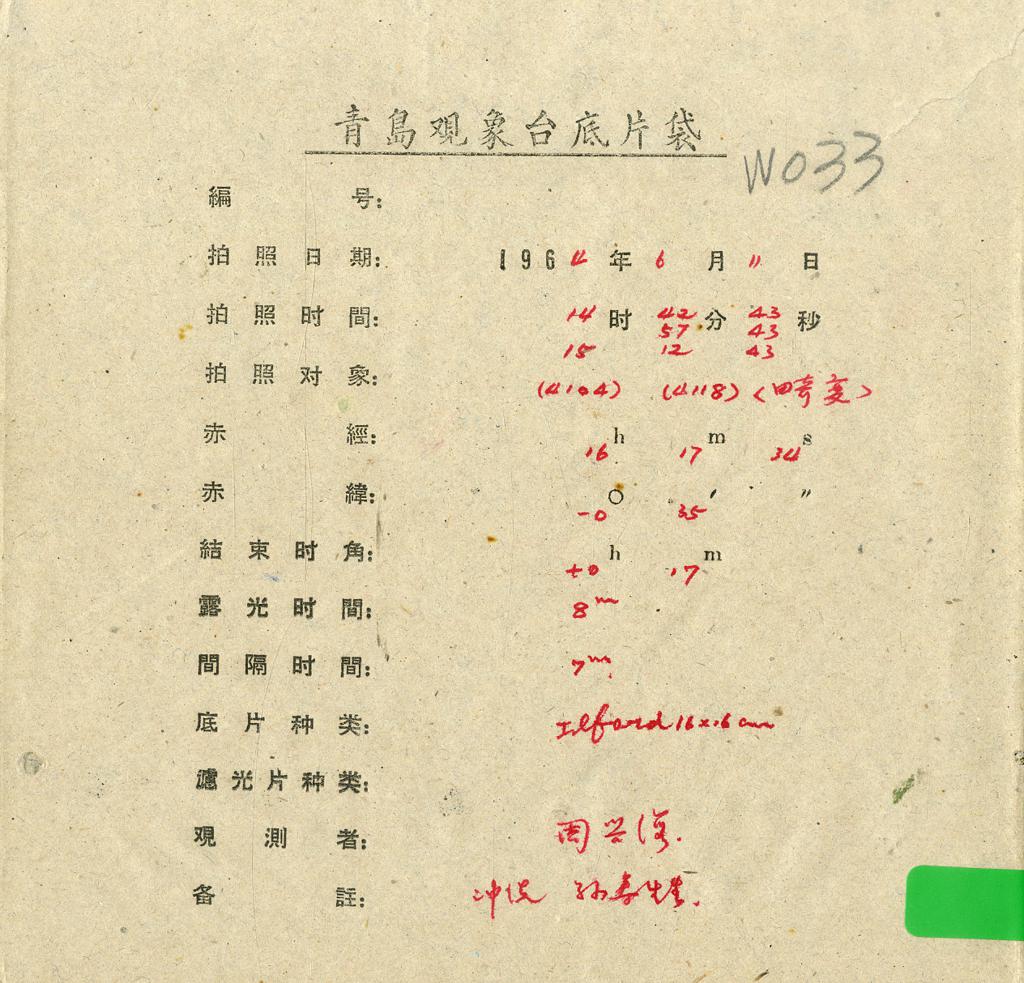 青島观象台底片袋
W033
編号:
拍照日期: 1964年6月11日
拍照时間: 14时42分43秒
57 43
15 12 43
拍照对象: (4104) (4118) <畸变>
赤經: 16h 17m 34s
赤緯: -0° 35′ ″
結束时角: +0h 17m
露光时間: 8m
間隔时間: 7m
底片种类: Ilford 16×16cm
濾光片种类:
观測者: 周兴海.
备註: 冲洗 孙寿